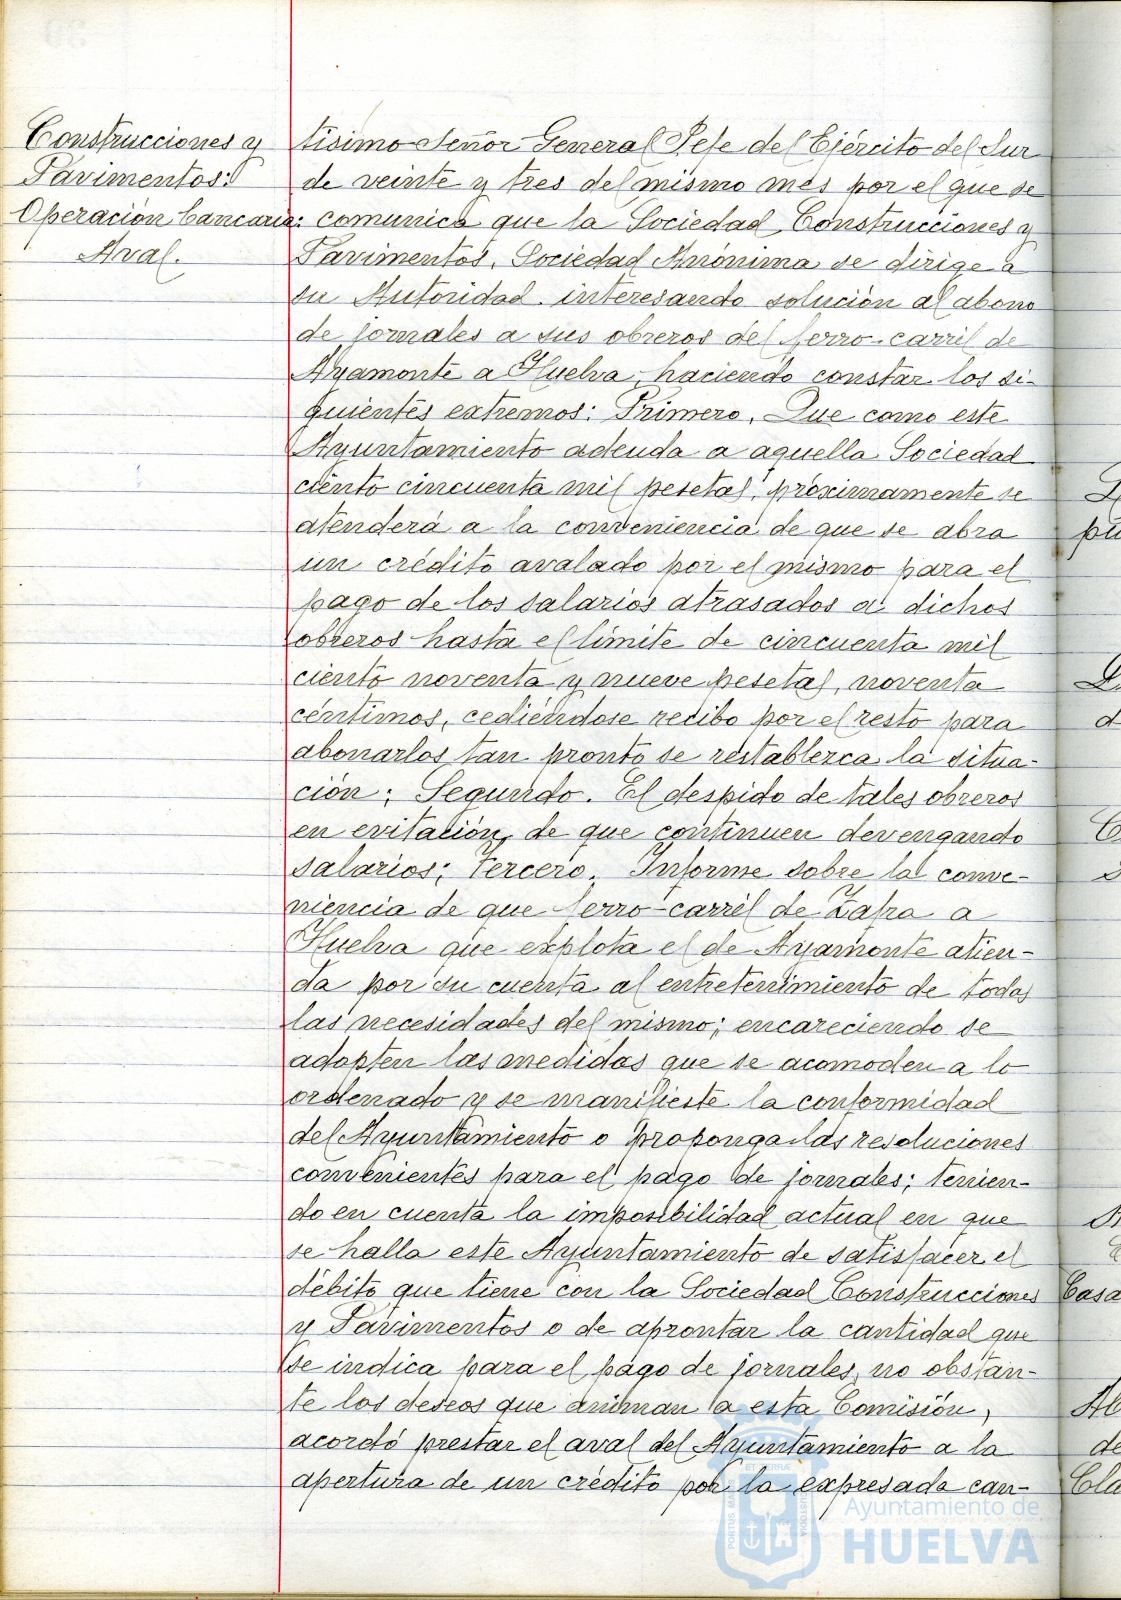 Construcciones y
Pavimentos:
Operación bancaria:
Aval.
tísimo Señor General Jefe del Ejército del Sur
de veinte y tres del mismo mes por el que se
comunica que la Sociedad, Construcciones y
Pavimentos, Sociedad Anónima se dirige a
su Autoridad interesando solución al abono
de jornales a sus obreros del ferro-carril de
Ayamonte a Huelva, haciendo constar los si-
guientes extremos: Primero. Que como este
Ayuntamiento adeuda a aquella Sociedad
ciento cincuenta mil pesetas, próximamente se
atenderá a la conveniencia de que se abra
un crédito avalado por el mismo para el
pago de los salarios atrasados a dichos
obreros hasta el límite de cincuenta mil
ciento noventa y nueve pesetas, noventa
céntimos, cediéndose recibo por el resto para
abonarlos tan pronto se restablezca la situa-
ción; Segundo. El despido de tales obreros
en evitación, de que continuen devengando
salarios; Tercero. Informe sobre la conve-
niencia de que ferro-carril de Zafra a
Huelva que explota el de Ayamonte atien-
da por su cuenta al entretenimiento de todas
las necesidades del mismo; encareciendo se
adopten las medidas que se acomoden a lo
ordenado y se manifieste la conformidad
del Ayuntamiento o proponga las resoluciones
convenientes para el pago de jornales; tenien-
do en cuenta la imposibilidad actual en que
se halla este Ayuntamiento de satisfacer el
débito que tiene con la Sociedad Construcciones
y Pavimentos o de aprontar la cantidad que
se indica para el pago de jornales, no obstan-
te los deseos que animan a esta Comisión,
acordó prestar el aval del Ayuntamiento a la
apertura de un crédito por la expresada can-
pu
d
Casa
de
Ayuntamiento de
HUELVA